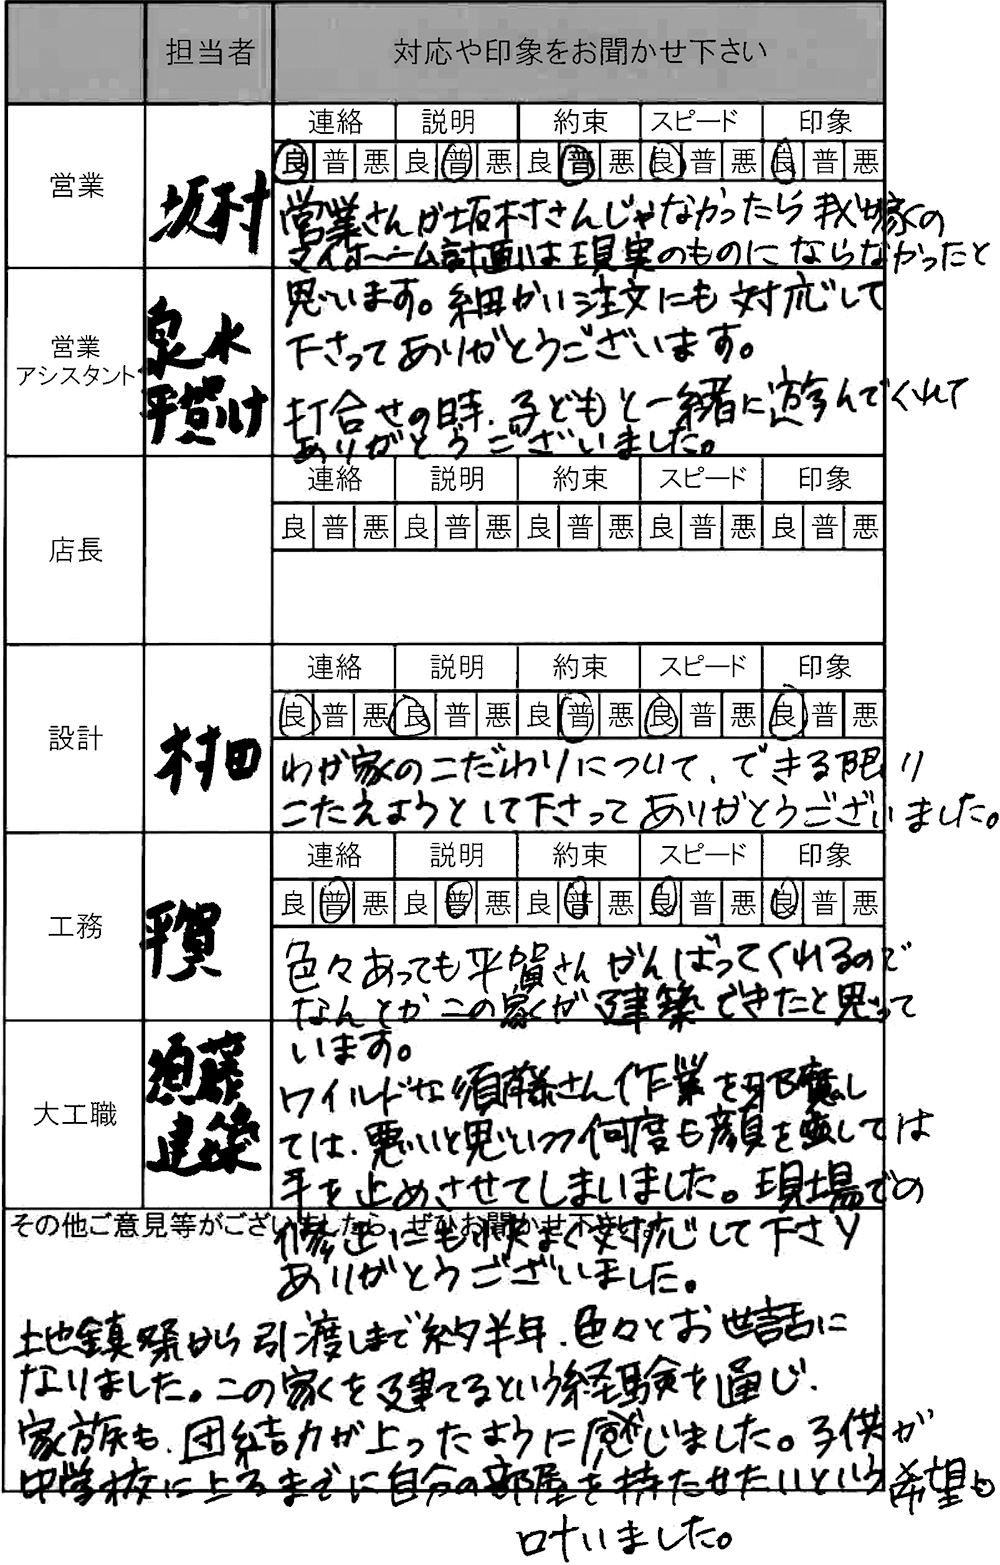 担当者 対応や印象をお聞かせ下さい
連絡 説明 約束 スピード 印象
良 普 悪 良 普 悪 良 普 悪 良 普 悪 良 普 悪
営業
坂村
営業さんが坂村さんじゃなかったら我が家の
マイホーム計画は現実のものにならなかったと
思います。細かい注文にも対応して
下さってありがとうございます。
営業
アシスタント
泉水
平賀け
打合せの時、子どもと一緒に遊んでくれて
ありがとうございました。
連絡 説明 約束 スピード 印象
良 普 悪 良 普 悪 良 普 悪 良 普 悪 良 普 悪
店長
連絡 説明 約束 スピード 印象
良 普 悪 良 普 悪 良 普 悪 良 普 悪 良 普 悪
設計
村田
わが家のこだわりについて、できる限り
こたえようとして下さってありがとうございました。
連絡 説明 約束 スピード 印象
良 普 悪 良 普 悪 良 普 悪 良 普 悪 良 普 悪
工務
平賀
色々あっても平賀さんがんばってくれるので
なんとかこの家が建築できたと思って
います。
大工職
須藤
建築
ワイルドな須藤さん作業を邪魔し
ては、悪いと思いつつ何度も顔を出しては
手を止めさせてしまいました。現場での
その他ご意見等がございましたら、ぜひお聞かせ下さい。
修正にも快く対応して下さり
ありがとうございました。
地鎮祭から引渡しまで約半年、色々とお世話に
なりました。この家を建てるという経験を通じ、
家族も、団結力が上ったように感じました。子供が
中学校に上るまでに自分の部屋を持たせたいという希望も
叶いました。